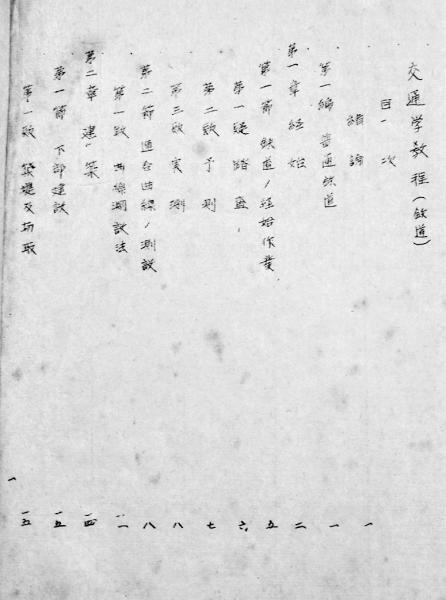 交通学教程（鉄道）
目次
緒論 一
第一編 普通鉄道 一
第一章 経始 二
第一節 鉄道ノ経始作業 五
第一段 踏査 六
第二段 予測 七
第三段 実測 八
第二節 逓合曲線ノ測設 八
第一段 曲線測設法 一一
第二章 建築 一四
第一節 下部建設 一五
第一段 築堤及切取 一五
一